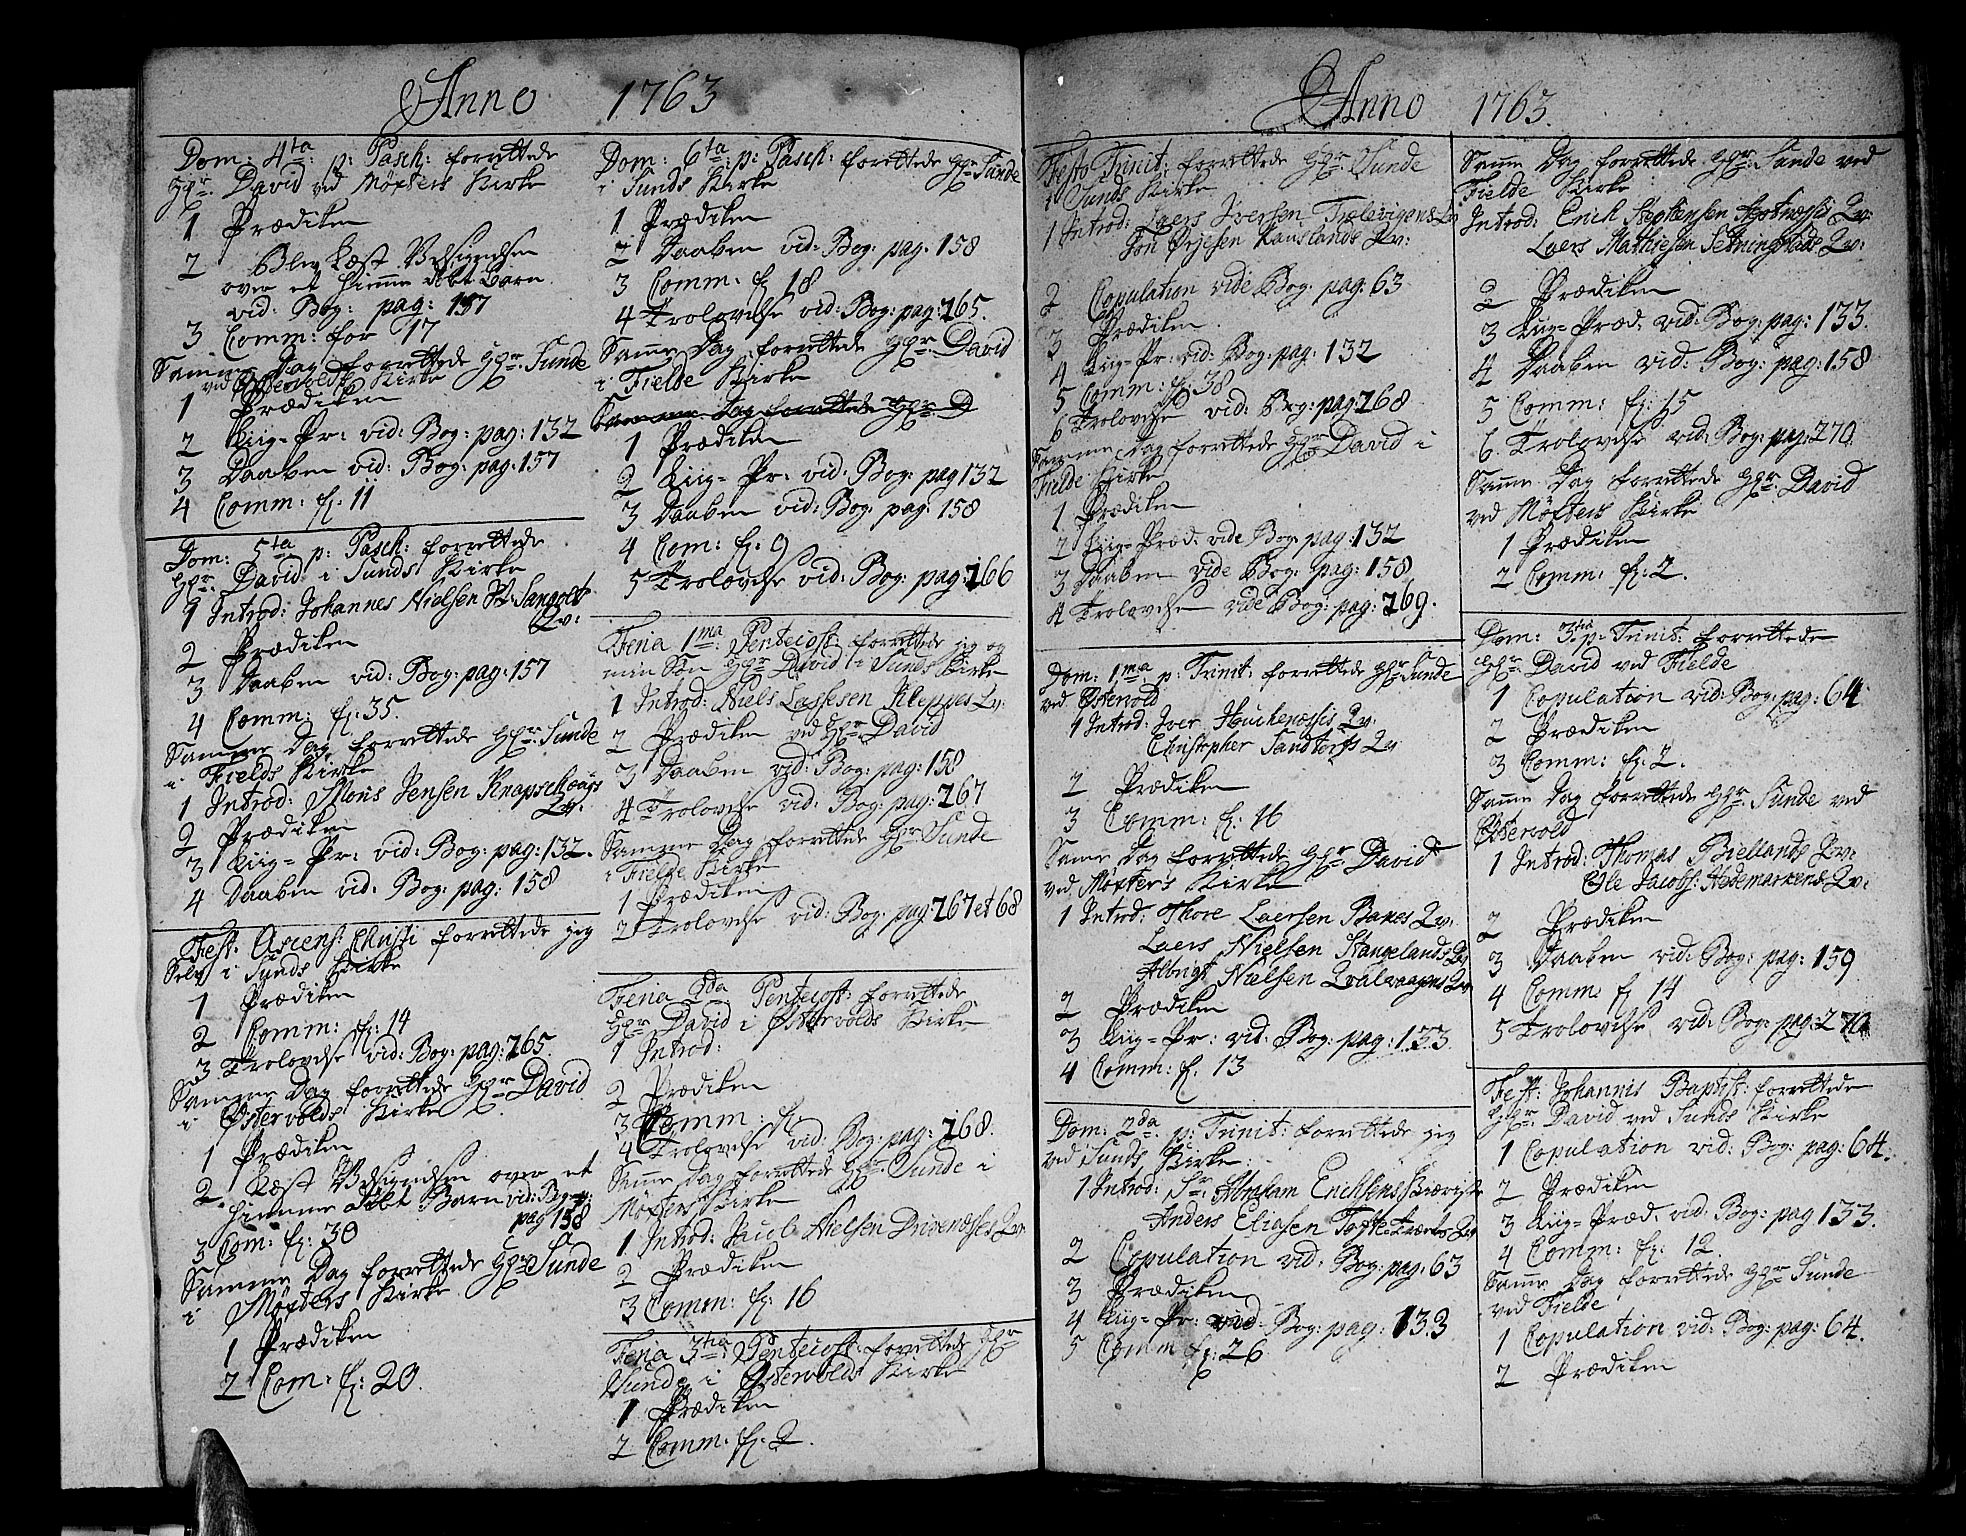 Anno 1763
Dom: 4ta p: Pasch: forrettede
Hr: David ved Møxters Kirke
1 Prædiken
2 Blev læst Velsignelsen
over et hiemme døbt Barn
vid: Bog: pag: 157
3 Comm: for 17
Samme Dag forrettede Hr: Sunde
ved Østervolds Kirke
1 Prædiken
2 Liig=Pr: vid: Bog: pag: 132
3 Daaben vid: Bog: pag: 157
4 Comm: f: 11
Dom: 5ta p: Pasch: forrettede
Hr: David i Sunds Kirke
1 Introd: Johannes Nielsen
Qv:
2 Prædiken
3 Daaben vid: Bog: pag: 157
4 Comm: f: 35.
Samme Dag forrettede Hr: Sunde
i Fields Kirke
1 Introd: Mons Jensen Knapschougs
Qv:
2 Prædiken
3 Liig=Pr: vid: Bog: pag: 132.
4 Daaben vid: Bog: pag: 158
Fest: Ascens: Christi forrettede jeg
Selv i Sunds Kirke
1 Prædiken
2 Comm: f: 14
3 Trolovelse vid: Bog: pag: 265.
Samme Dag forrettede Hr: David
i Østervolds Kirke
1 Prædiken
2 Læst Velsignelsen over et
hiemme døbt Barn vid: Bog:
pag 158
3 Com: f: 30
Samme Dag forrettede Hr: Sunde
i Møxters Kirke
1 Prædiken
2 Com: f: 20.
Dom: 6ta p: Pasch: forrettede Hr: Sunde
i Sunds Kirke
1 Prædiken
2 Daaben vid: Bog: pag: 158
3 Comm: f: 18
4 Trolovelse vid: Bog: pag: 265.
Samme Dag forrettede Hr: David
i Fielde Kirke
Samme Dag forrettede Hr: D
1 Prædiken
2 Liig=Pr: vid: Bog: pag 132
3 Daaben vid: Bog: pag: 158
4 Com: f: 9
5 Trolovelse vid: Bog: pag: 266
Feria 1ma: Pentecost: forrettede jeg og
min Søn Hr: David i Sunds Kirke
1 Introd: Niels Lassesen Kleppes Qv:
2 Prædiken ved Hr: David
3 Daaben vid: Bog: pag: 158
4 Trolovelse vid: Bog: pag: 267
Samme Dag forrettede Hr: Sunde
i Fielde Kirke
1 Prædiken
2 Trolovelse vid: Bog: pag: 267 et 68
Feria 2da Pentecost: forrettede
Hr: David i Østervolds Kirke
1 Introd:
2 Prædiken
3 Comm: f:
4 Trolovelse vid: Bog: pag: 268.
Samme Dag forrettede Hr: Sunde i
Møxters Kirke
1 Introd: Paul Nielsen Drivenæsses Qv:
2 Prædiken
3 Comm: f: 16
Feria 3tia: Pentecost: forrettede Hr
Sunde i Østervolds Kirke
1 Prædiken
2 Comm: f: 2.
Anno 1763.
Festo Trinit: forrettede Hr: Sunde
i Sunds Kirke
1 Introd: Laers Iversen Trælevigens Qv
Jon Ørjesen Kauslands Qv:
2 Copulation vide Bog: pag: 63
3 Prædiken
4 Liig=Pr: vid: Bog: pag: 132
5 Comm: f: 38
6 Trolovelse vid: Bog: pag: 268
Samme Dag forrettede Hr: David i
Fielde Kirke
1 Prædiken
2 Liig=Præd: vide Bog: pag: 132
3 Daaben vide Bog: pag: 158
4 Trolovelsen vide Bog: pag: 269.
Dom: 1ma p: Trinit: forrettede Hr: Sunde
ved Østervold
1 Introd: Iver Houchenæssis Qv:
Christopher Sandtorfs Qv:
2 Prædiken
3 Comm: f: 16
Samme Dag forrettede Hr: David
ved Møxters Kirke
1 Introd: Thore Laersen Banes Qv:
Laers Nielsen Hangelands Qv
Albrigt Nielsen Qvalvaagens Qv
2 Prædiken
3 Liig=Pr: vid: Bog: pag: 133
4 Comm: f: 13
Dom: 2da: p: Trinit: forrettede jeg
ved Sunds Kirke:
1 Introd: Sr: Abraham Erichsens Kiæriste
Anders Eliasen Toftetræets Qv
2 Copulation vid: Bog: pag: 63
3 Prædiken
4 Liig=Pr: vid: Bog: pag: 133
5 Comm f: 26
Samme Dag forrettede Hr: Sunde ved
Fielde Kirke
Introd: Erich Stephensen Qv:
Laers Mathiesen Qv:
2 Prædiken
3 Liig=Præd. vid: Bog: pag: 133.
4 Daaben vid: Bog: pag: 158
5 Comm: f: 15
6. Trolovelse vid: Bog: pag: 270
Samme Dag forrettede Hr: David
ved Møxters Kirke
1 Prædiken
2 Comm: f: 2.
Dom: 3tia p: Trinit: forrettede
Hr: David ved Fielde
1 Copulation vid: Bog: pag: 64
2 Prædiken
3 Comm: f: 2.
Samme Dag forrettede Hr: Sunde ved
Østervold
1 Introd: Thomas Biellands Qv:
Ole Jacobs: Hedemarkens Qv:
2 Prædiken
3 Daaben vid: Bog: pag: 159
4 Comm: f: 14
5 Trolovelse vid: Bog: pag: 270
Fest: Johannis Baptist: forrettede
Hr: David ved Sunds Kirke
1 Copulation vid: Bog: pag: 64.
2 Prædiken
3 Liig=Præd. vid: Bog: pag 133.
4 Comm: f: 12.
Samme Dag forrettede Hr: Sunde
ved Fielde
1 Copulation vid: Bog: pag: 64.
2 Prædiken